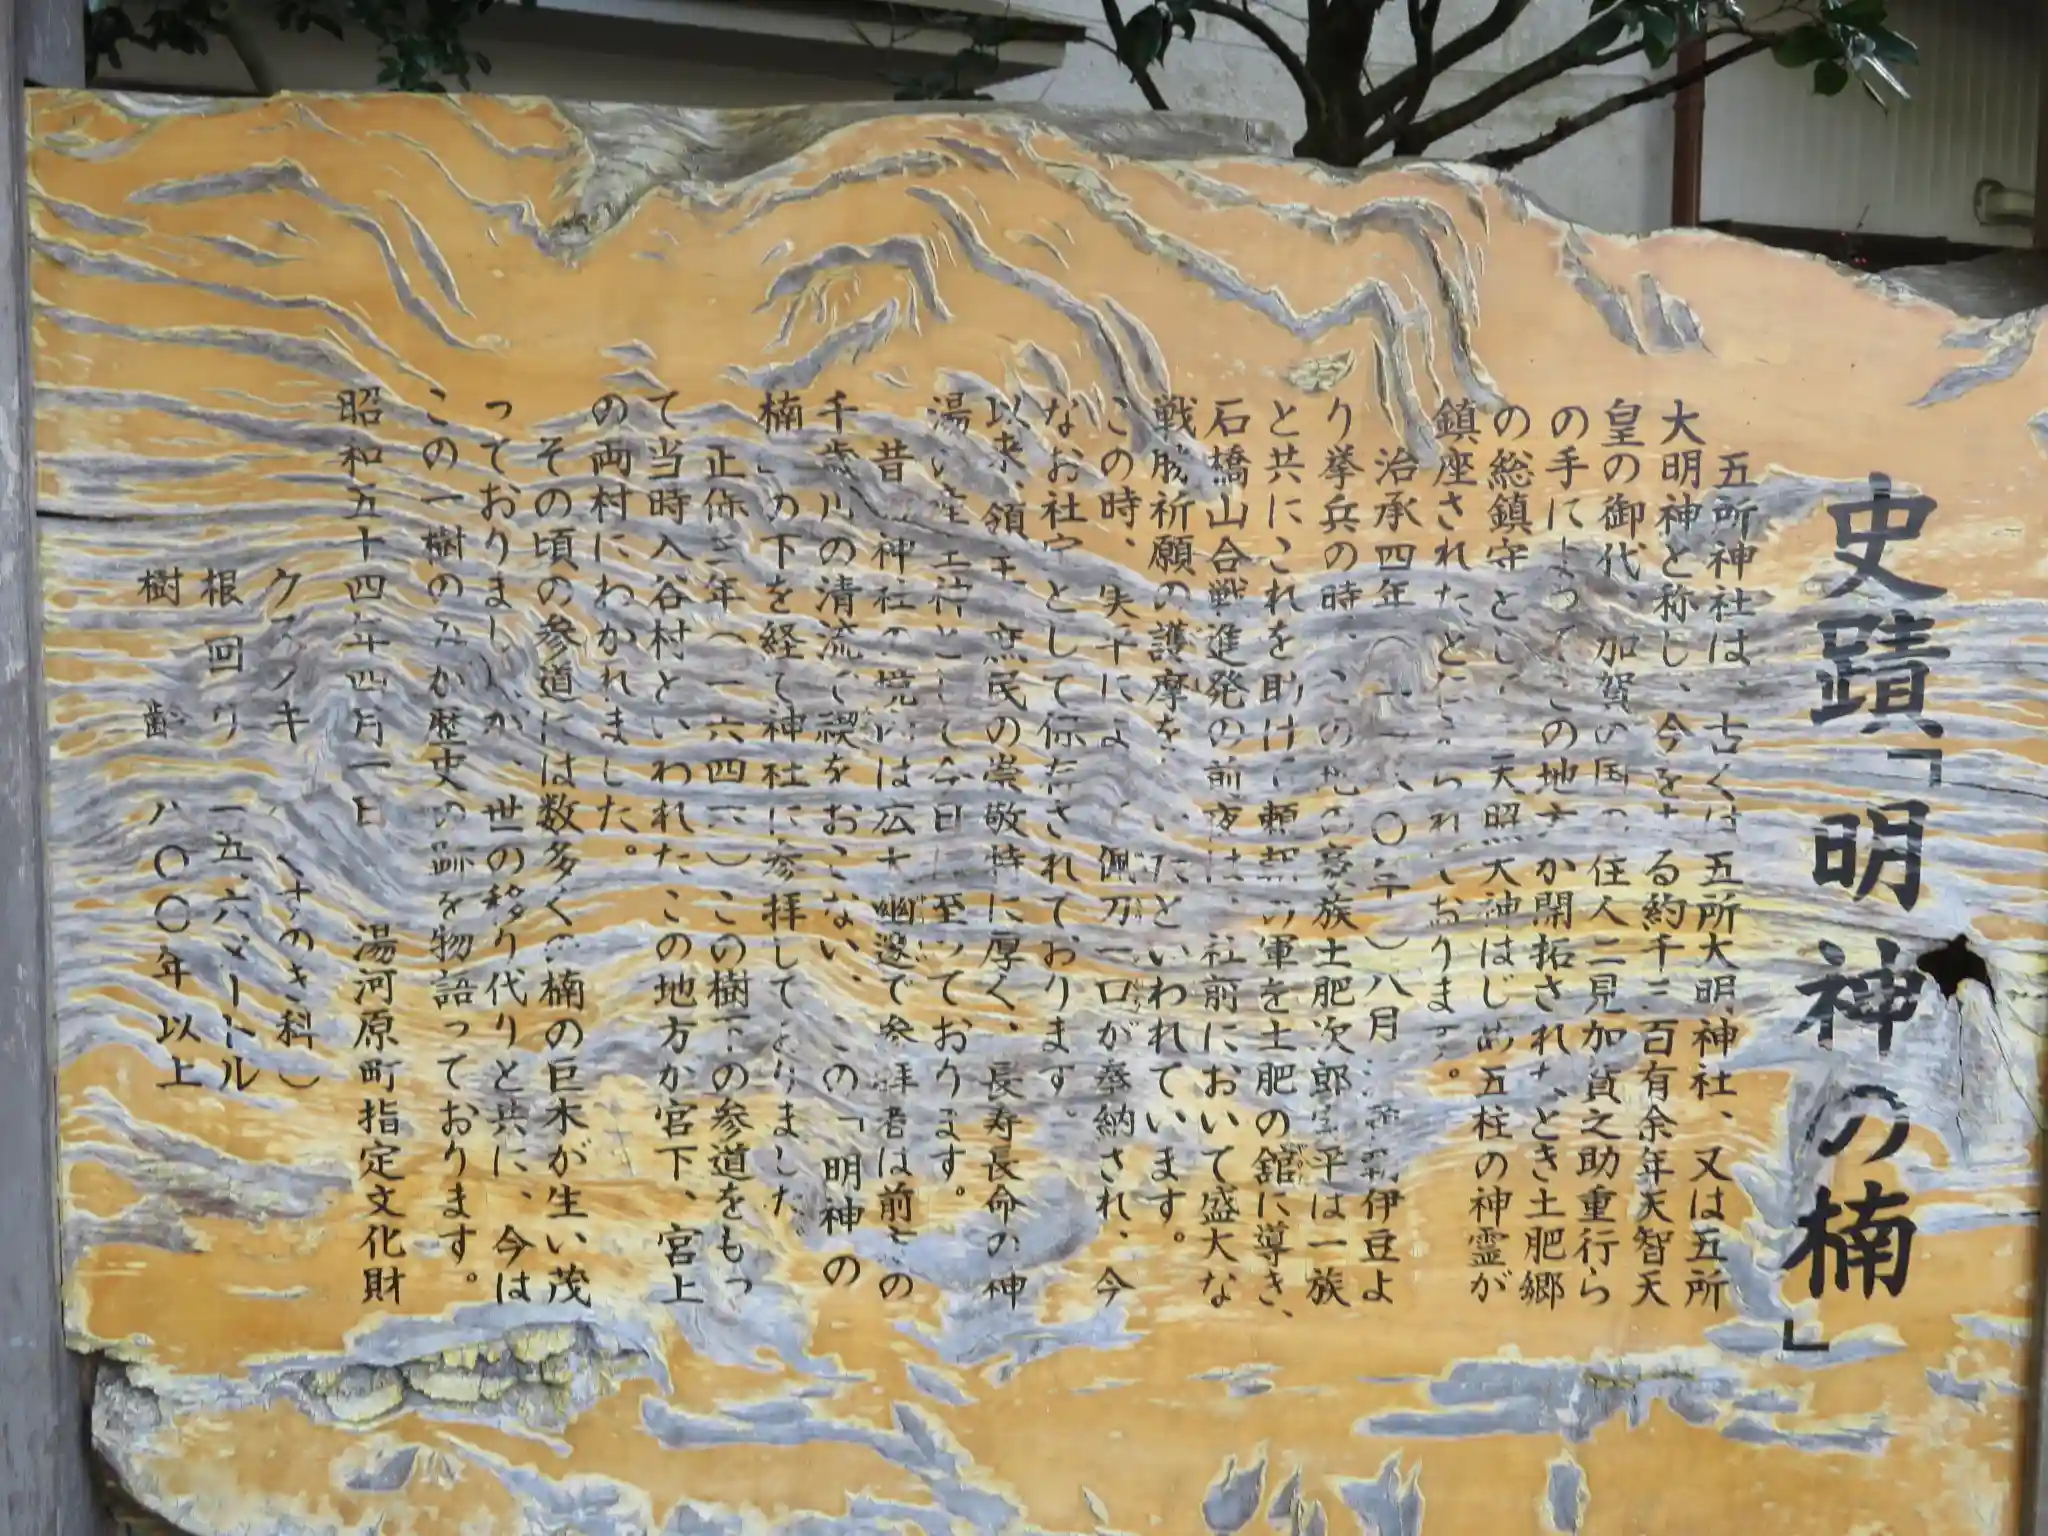 史蹟「明神の楠」
五所神社は、古くは五所大明神社、又は五所
大明神と称し、今を去る約千三百有余年天智天
皇の御代、加賀の国の住人二見加賀之助重行ら
の手によってこの地方が開拓されたとき土肥郷
の総鎮守として、天照大神はじめ五柱の神霊が
鎮座されたとたえられております。
治承四年（一一八〇年）八月 伊豆よ
り挙兵の時、この地の豪族土肥次郎実平は一族
と共にこれを助け、頼朝の軍を土肥の館に導き、
石橋山合戦進発の前夜は、社前において盛大な
戦勝祈願の護摩をたいたといわれています。
この時、実平によって佩刀一口が奉納され、今
なお社宝として保存されております。
以来、領主、庶民の崇敬特に厚く、長寿長命の神
湯の産土神として今日に至っております。
昔、神社の境内は広大幽邃で参拝者は前方の
千歳川の清流で禊をおこない、この「明神の
楠」の下を経て神社に参拝しておりました。
正保三年（一六四六）この樹下の参道をもっ
て当時入谷村といわれたこの地方が宮下、宮上
の両村にわかれました。
その頃の参道には数多くの楠の巨木が生い茂
っておりましたが、世の移り代りと共に、今は
この一樹のみが歴史の跡を物語っております。
昭和五十四年四月一日 湯河原町指定文化財
クスノキ（くすのき科）
根回り 一五、六メートル
樹齢 八〇〇年以上